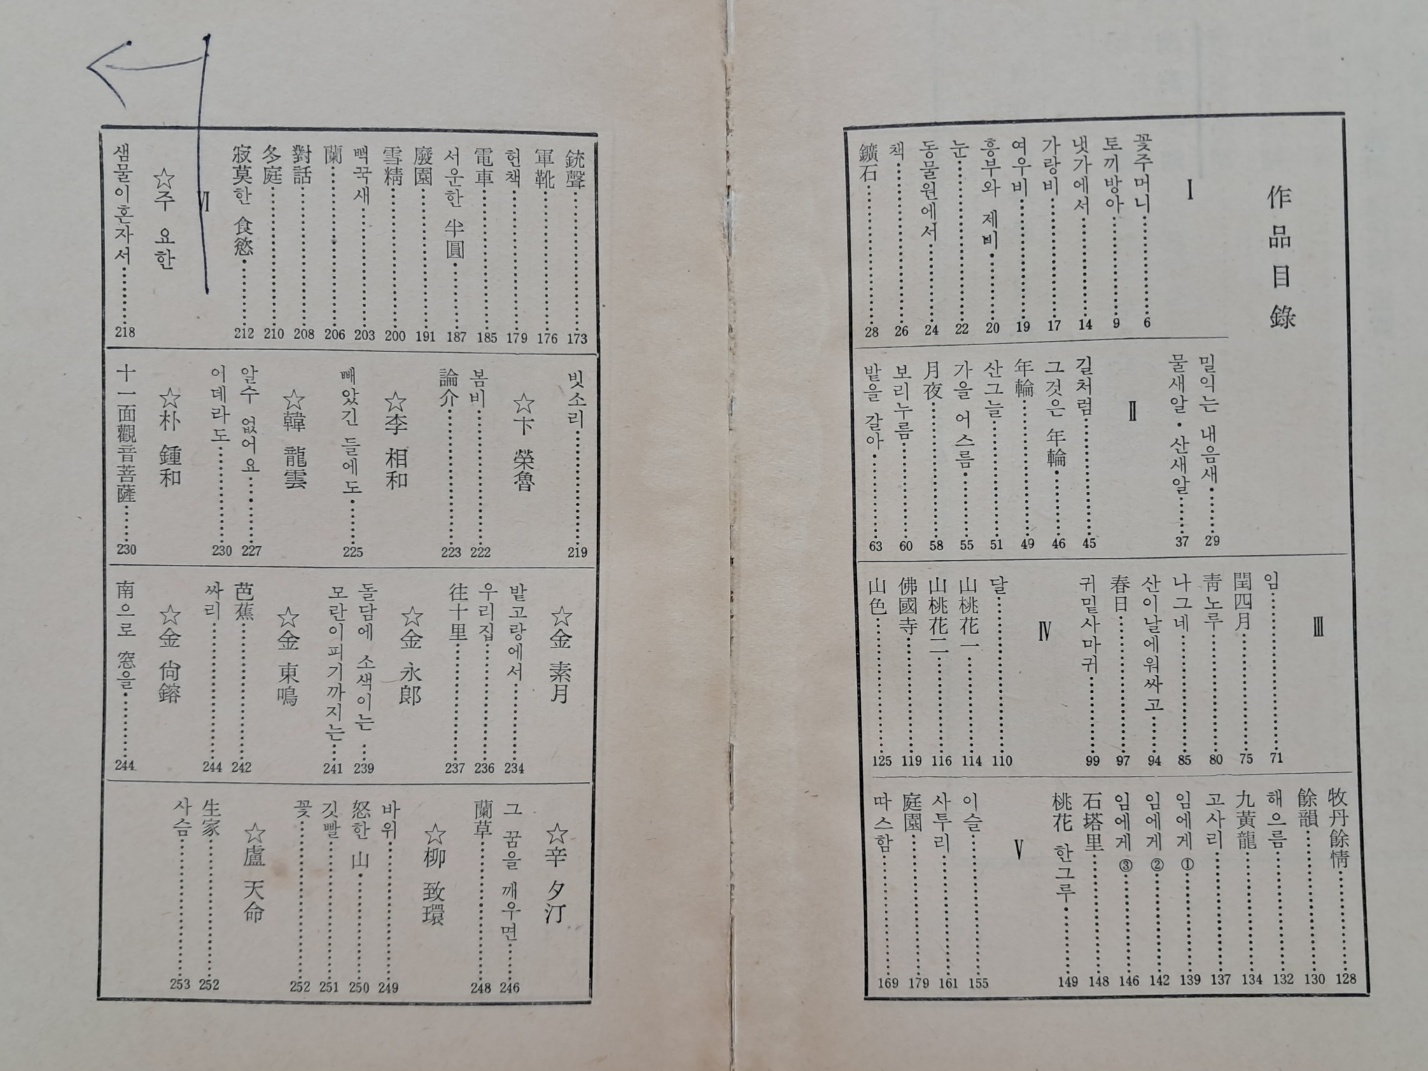 作品目錄
Ⅰ
꽃주머니……6
토끼방아……9
냇가에서……14
가랑비……17
여우비……19
흥부와 제비……20
눈……22
동물원에서……24
책……26
鑛石……28
밀익는 내음새……29
물새알・산새알……37
Ⅱ
길처럼……45
그것은 年輪……46
年輪……49
산그늘……51
가을 어스름……55
月夜……58
보리누름……60
밭을 갈아……63
Ⅲ
임……71
閏四月……75
靑노루……80
나그네……85
산이날에워싸고……94
春日……97
귀밑사마귀……99
Ⅳ
달……110
山桃花一……114
山桃花二……116
佛國寺……119
山色……125
牧丹餘情……128
餘韻……130
해으름……132
九黃龍……134
고사리……137
임에게①……139
임에게②……142
임에게③……146
石塔里……148
桃花 한그루……149
Ⅴ
이슬……155
사투리……161
庭園……179
따스함……169
銃聲……173
軍靴……176
헌책……179
電車……185
서운한 半圓……187
廢園……191
雪精……200
뻑꾹새……203
蘭……206
對話……208
冬庭……210
寂莫한 食慾……212
Ⅵ
☆주 요한
샘물이혼자서……218
빗소리……219
☆卞 榮魯
봄비……222
論介……223
☆李 相和
빼았긴 들에도……225
☆韓 龍雲
알수 없어요……227
어데라도……230
☆朴 鍾和
十一面觀音菩薩……230
☆金 素月
밭고랑에서……234
우리집……236
往十里……237
☆金 永郎
돌담에 소색이는…239
모란이피기까지는…241
☆金 東鳴
芭蕉……242
싸리……244
☆金 尙鎔
南으로 窓을……244
☆辛 夕汀
그 꿈을 깨우면…246
蘭草……248
☆柳 致環
바위……249
怒한 山……250
깃빨……251
꽃……252
☆盧 天命
生家……252
사슴……253